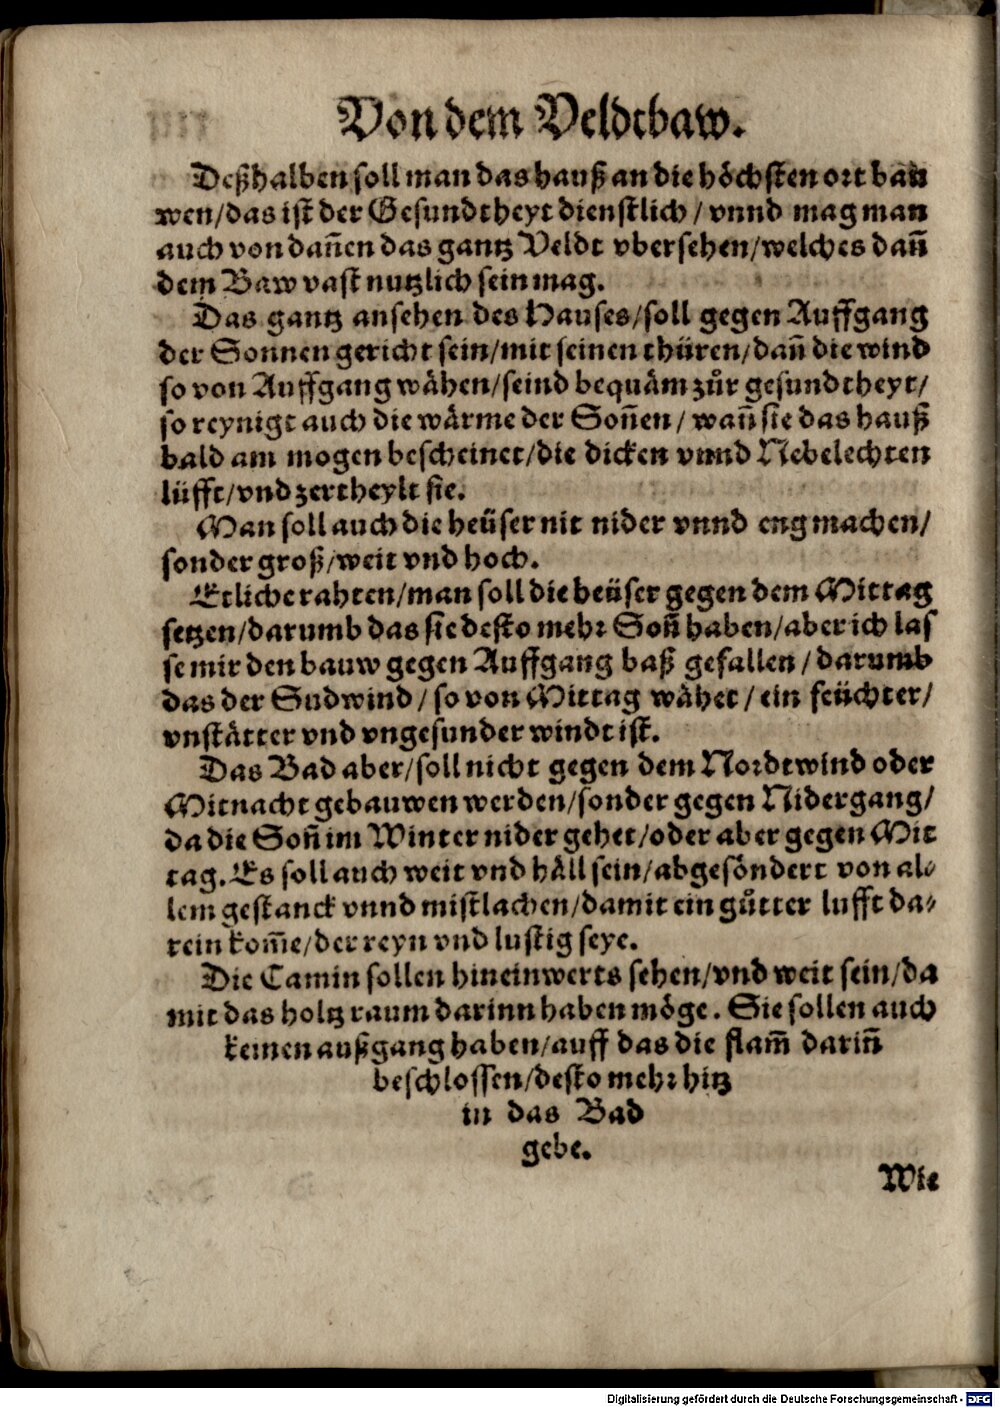 Von dem Veldtbaw.
Deßhalben soll man das hauß an die höchsten ort bau
wen/das ist der Gesundtheyt dienstlich/ vnnd mag man
auch von dañen das gantz Veldt vbersehen/welches dañ
dem Baw vast nutzlich sein mag.
Das gantz ansehen des Hauses/soll gegen Auffgang
der Sonnen gericht sein/mit seinen thüren/dañ die wind
so von Auffgang wähen/seind bequäm zůr gesundtheyt/
so reynigt auch die wärme der Soñen/ wañ sie das hauß
bald am mogen bescheinet/die dicken vnnd Nebelechten
lüfft/vnd zertheylt sie.
Man soll auch die heüser nit nider vnnd eng machen/
sonder groß/weit vnd hoch.
Etliche rahten/man soll die heüser gegen dem Mittag
setzen/darumb das sie desto mehr Soñ haben/aber ich las
se mir den bauw gegen Auffgang baß gefallen/darumb
das der Sudwind/ so von Mittag wähet/ ein feüchter/
vnstätter vnd vngesunder windt ist.
Das Bad aber/soll nicht gegen dem Nordtwind oder
Mitnacht gebauwen werden/sonder gegen Nidergang/
da die Soñ im Winter nider gehet/oder aber gegen Mit
tag. Es soll auch weit vnd häll sein/abgesöndert von al⸗
lem gestanck vnnd mistlachen/damit ein gůtter lufft da⸗
rein kom̃e/der reyn vnd lustig seye.
Die Camin sollen hineinwerts sehen/vnd weit sein/da
mit das holtz raum darinn haben möge. Sie sollen auch
keinen außgang haben/auff das die flam̃ dariñ
beschlossen/desto mehr hitz
in das Bad
gebe.
Wie
Digitalisierung gefördert durch die Deutsche Forschungsgemeinschaft - DFG